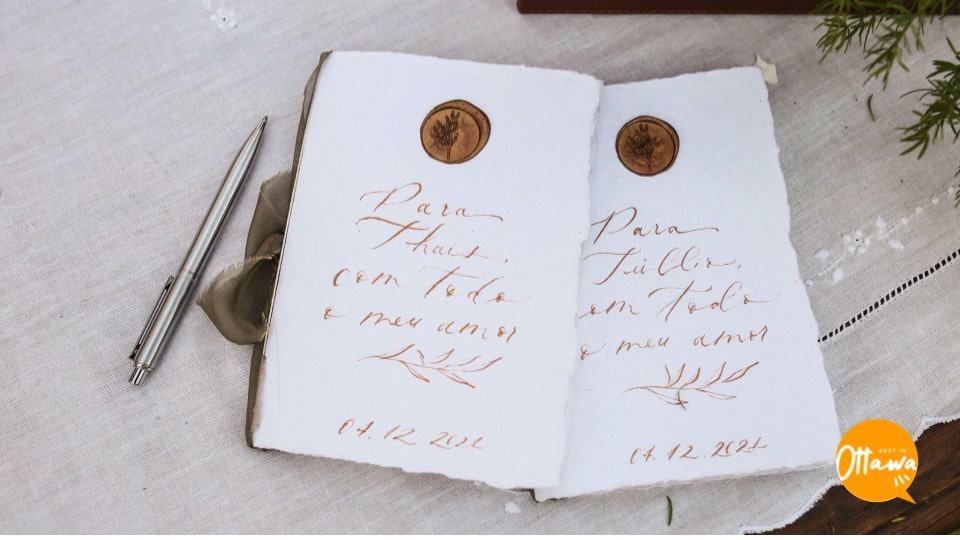 Para
Thais,
com todo
o meu amor
04.12.2021
Para
Túllio,
com todo
o meu amor
04.12.2021
BEST IN
Ottawa